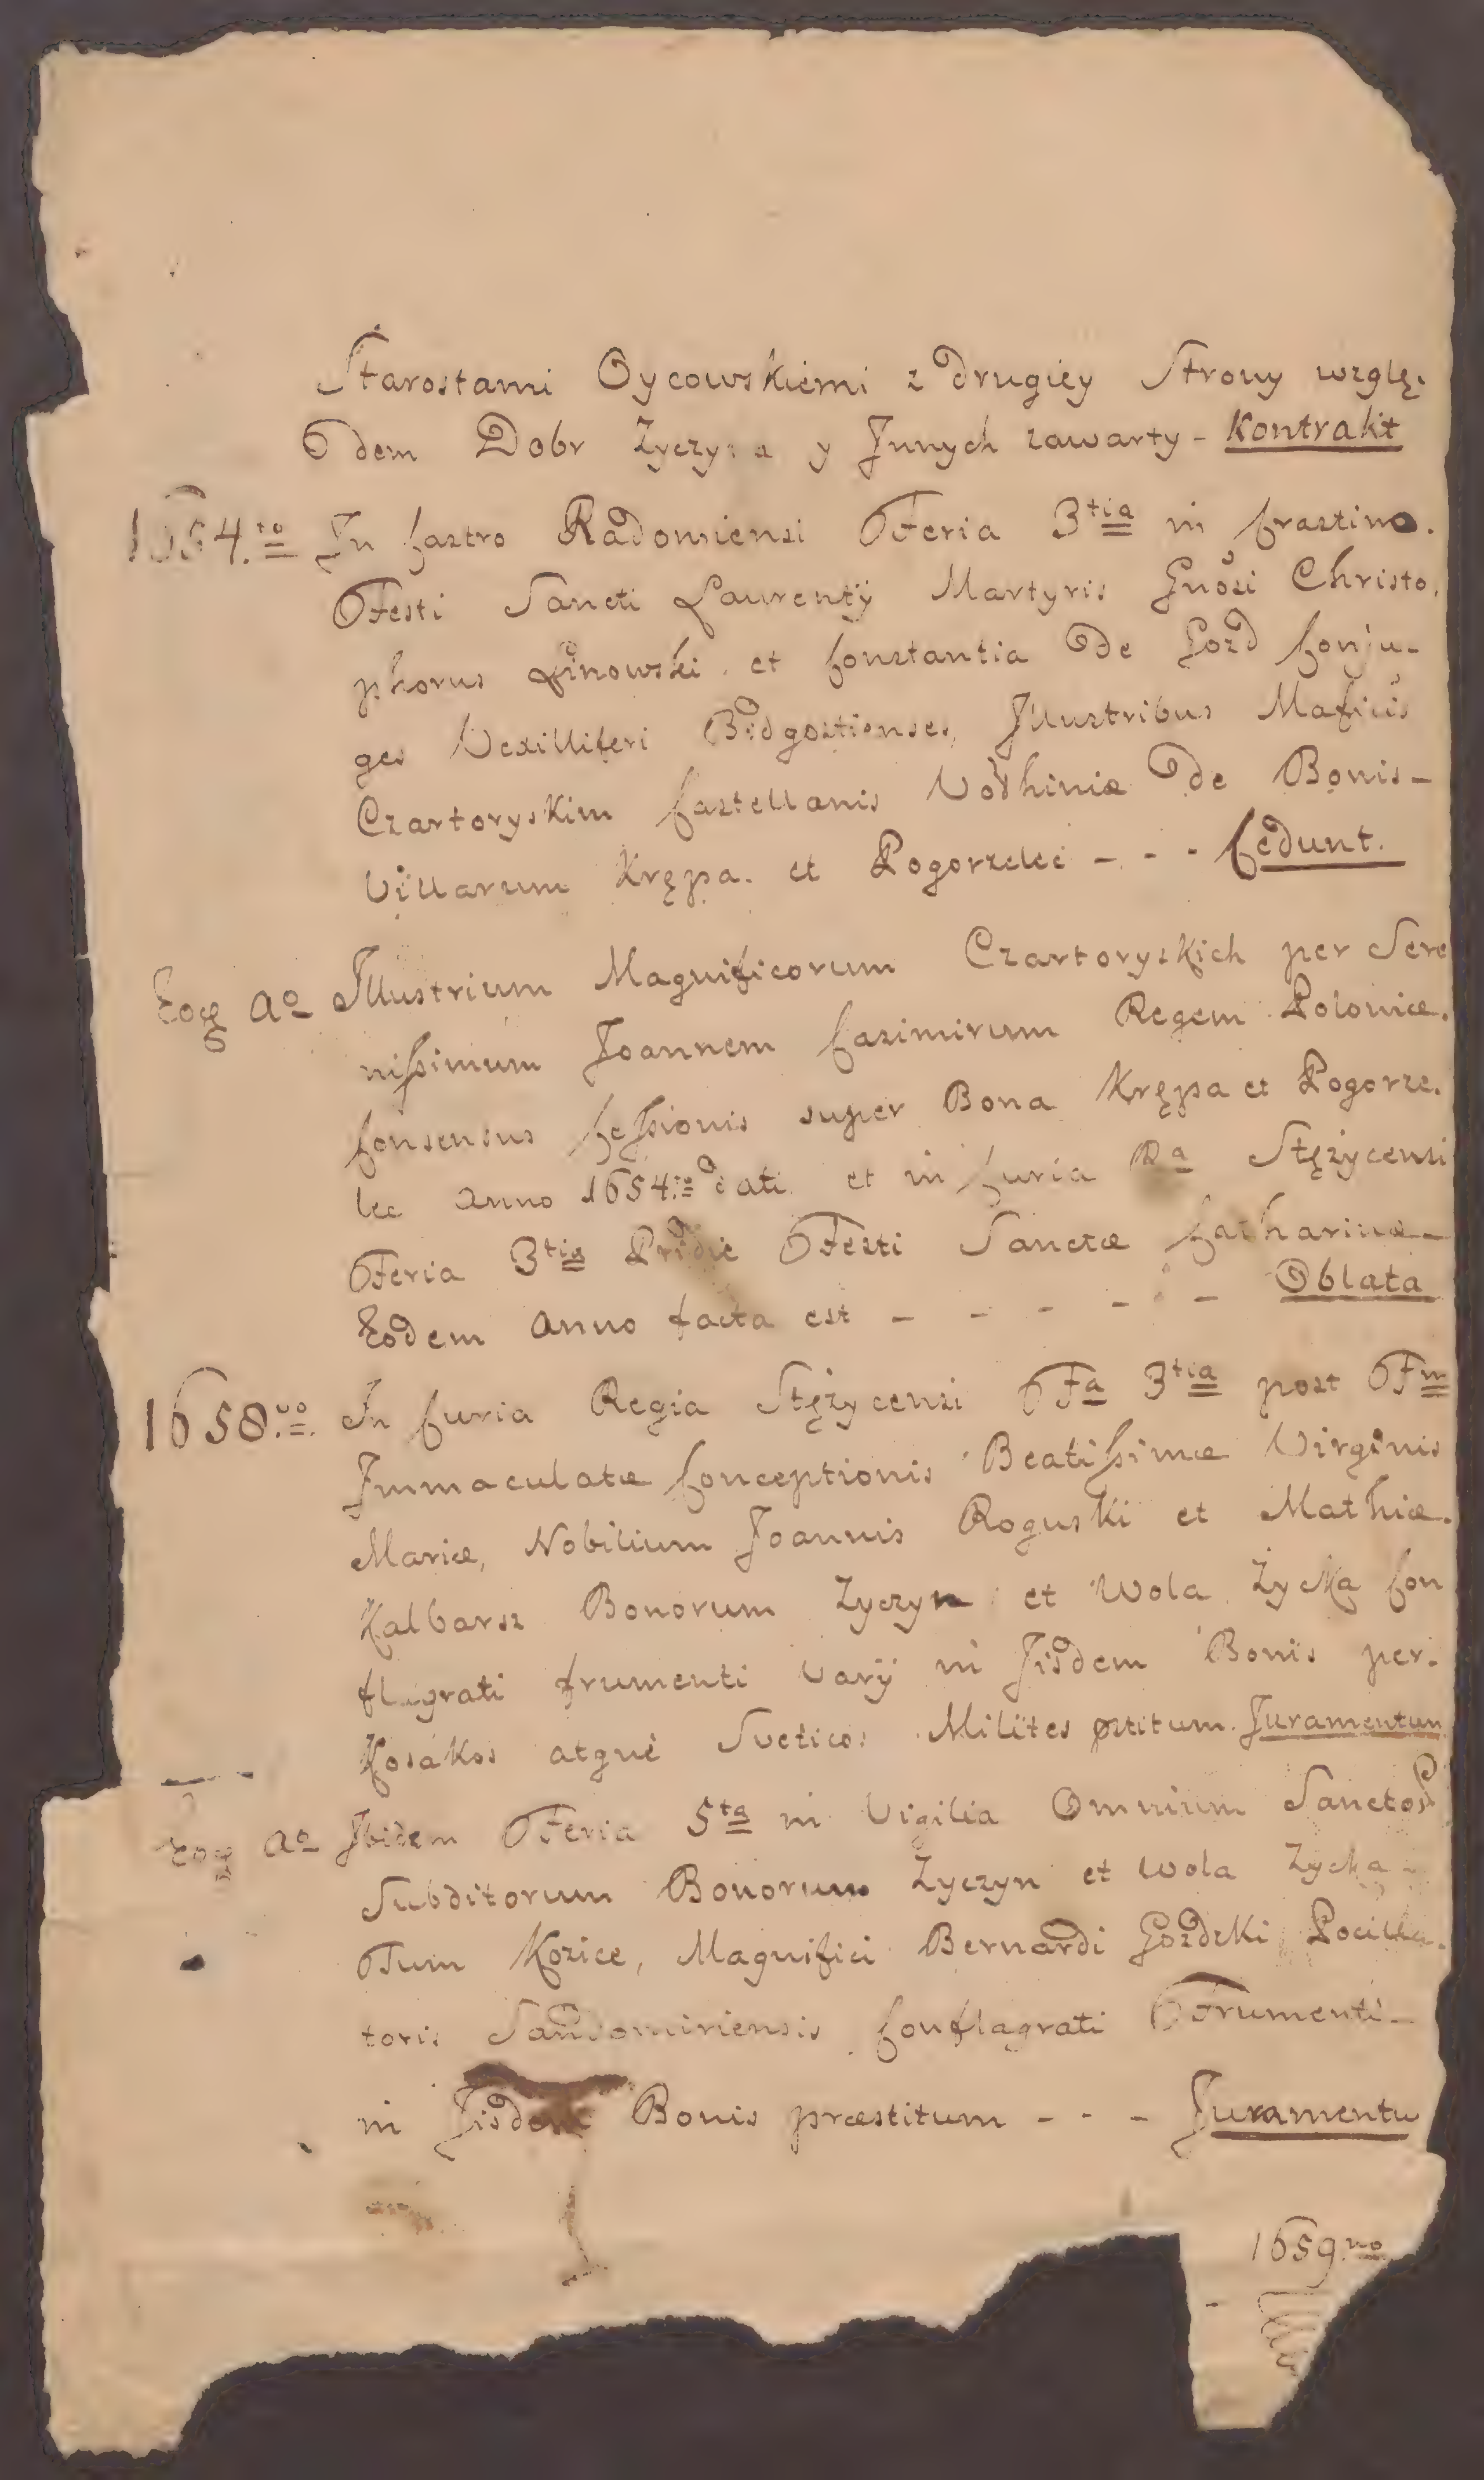 Starostami Oycowskiemi z drugiey Strony wzglę-
dem Dobr Życzyna y Jnnych zawarty - Kontrakt
1654.to In Castro Radomiensi Feria 3tia in Crastino.
Festi Sancti Laurentÿ Martyris Gnosi Christo,
phorus Linowski et Constantia de Gozd Conju-
ges Vexilliferi Bidgostienses, Jllustribus Mafĩcis
Czartoryskim Castellanis Volhiniæ de Bonis -
Villarum Krępa. et Pogorzelec - - - Cedunt.
Eoq Ao Jllustrium Magnificorum Czartoryskich per Sere
nissimum Joannem Casimirum Regem Poloniæ.
Consensus Cessionis super Bona Krępa et Pogorze.
lec anno 1654.to dati et in Curia Ra Stężycensi
Feria 3tia Pridie Festi Sanctæ Catharinæ -
Eodem anno facta est - - - - - - Oblata
1658.vo In Curia Regia Stężycensi Fa 3tia post Fm
Jmmaculatæ Conceptionis Beatissimæ Virginis
Mariæ, Nobilium Joannis Roguski et Mathiæ.
Kalbarsz Bonorum Życzyn et Wola Życka Con
flagrati frumenti varÿ in Jisdem Bonis per.
Kosakos atque Sveticos Milites pztitum. Juramentum
Eoq Ao Jbidem Feria 5ta in Vigilia Omnium Sancto
Subditorum Bonorum Życzyn et Wola Życka -
Tum Kozice, Magnifici Bernardi Gozdzki Pocilla.
toris Sandomiriensis Conflagrati Frumenti -
in Jisdem Bonis præstitum - - - Juramentu
1659.no